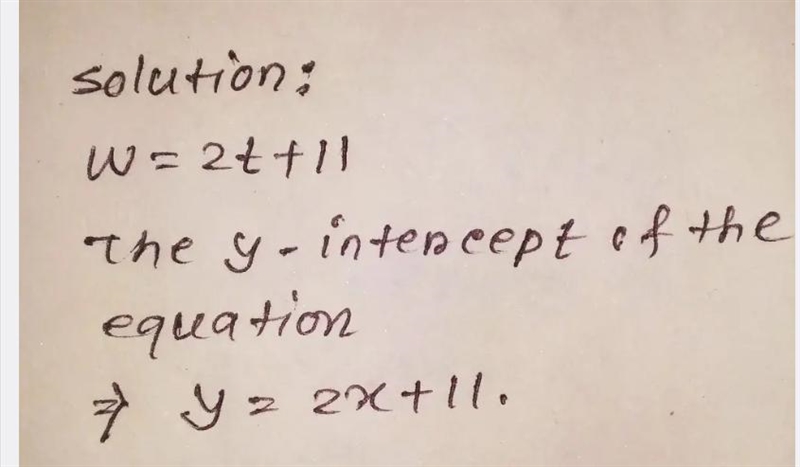 solution:
W = 2t + 11
The y-intercept of the
equation
⇒ y = 2x + 11.